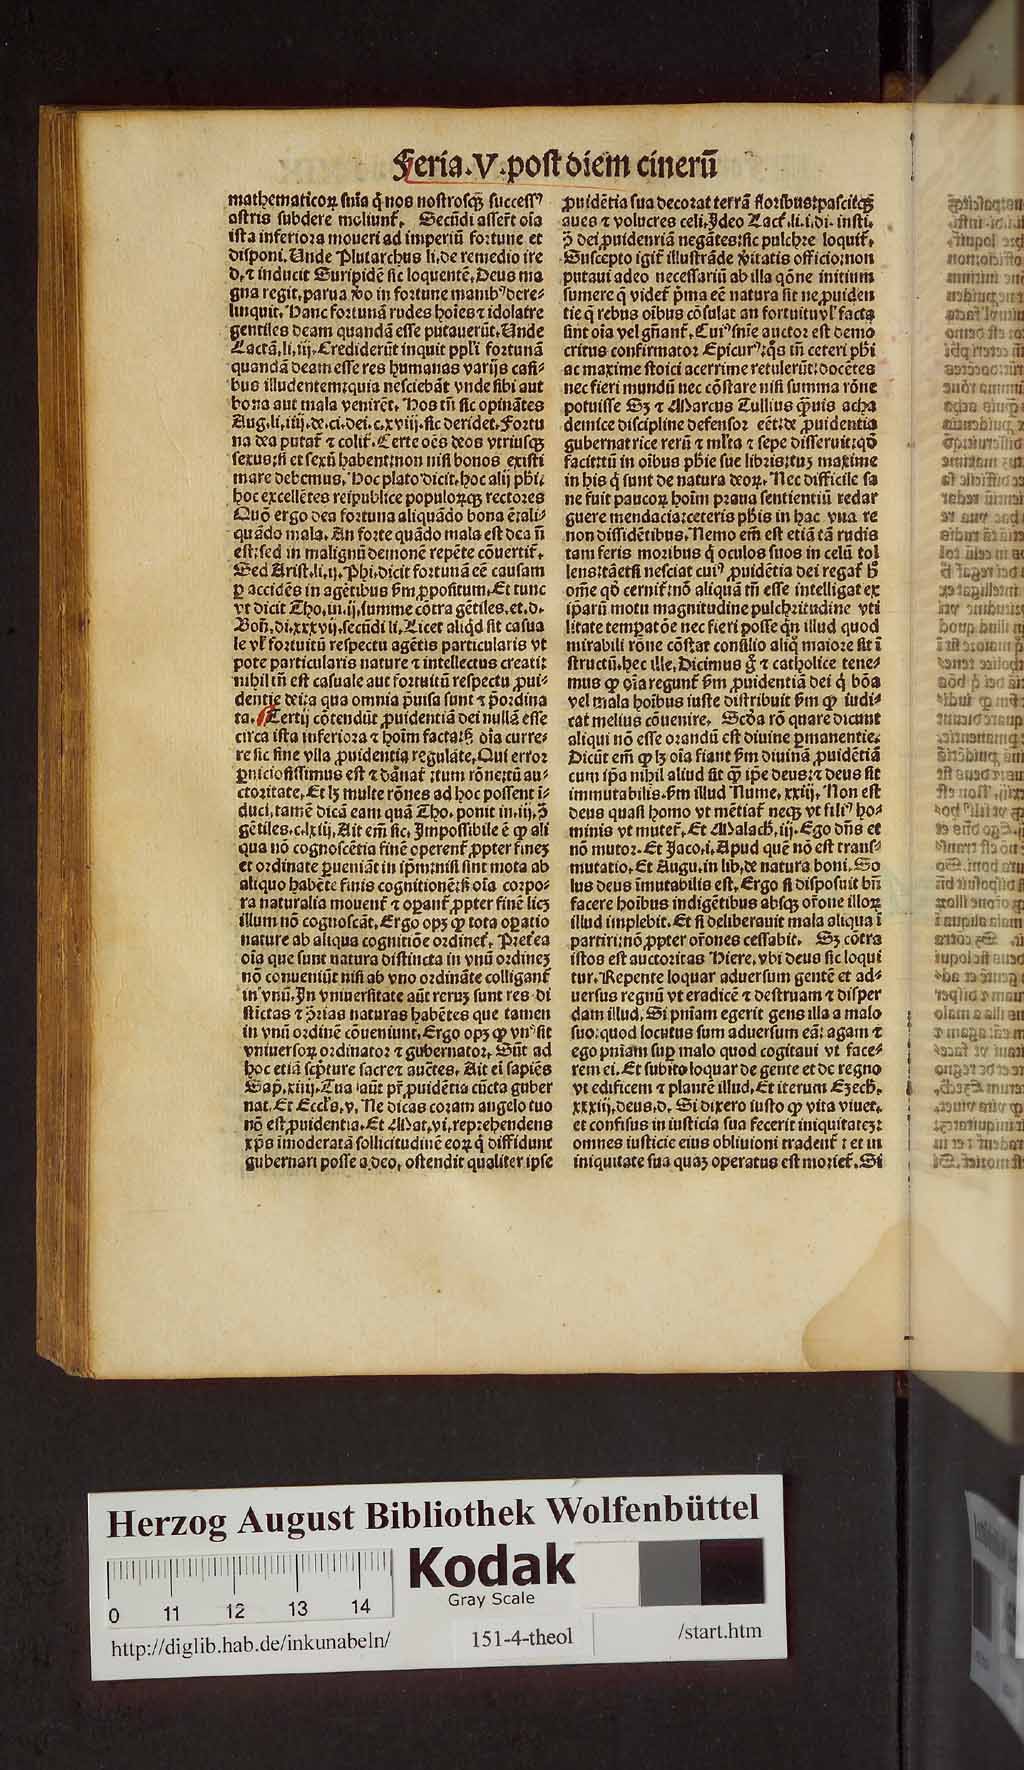 Feria.V.post diem cinerū
mathematicoꝝ sn̄ia q̇ nos nostrosqꝫ successꝰ
astris subdere moliunt᷑. Secūdi assert̄ oīa
ista inferiora moueri ad imperiū fortune et
disponi. Unde Plutarchus li. de remedio ire
d. ⁊ inducit Euripidē sic loquentē. Deus ma
gna regit. parua ꝟo in fortune manibꝰ dere⸗
linquit. Hanc fortunā rudes hoīes ⁊ idolatre
gentiles deam quandā esse putauerūt. Unde
Lactā. li. iij. Crediderūt inquit ppl̄i fortunā
quandā deam esse res humanas varijs casi⸗
bus illudentem: quia nesciebāt vnde sibi aut
bona aut mala venirēt. Hos tn̄ sic opināntes
Aug. li. iiij. de. ci. dei. c. xviij. sic deridet. Fortu
na dea putat᷑ ⁊ colit᷑. Certe oēs deos vtriusqꝫ
sexus: si et sexū habent: non nisi bonos existi
mare debemus. Hoc plato dicit. hoc alij ph̄i.
hoc excellētes reipublice populoꝝqꝫ rectores
Quō ergo dea fortuna aliquādo bona ē: ali⸗
quādo mala. An forte quādo mala est dea nō
est: sed in malignū demonē repēte cōuertit᷑.
Sed Arist. li. ij. Phi. dicit fortunā eē causam
ꝑ accidēs in agētibus ẜm ꝓpositum. Et tunc
vt dicit Tho. in. ij. summe cōtra gētiles. et. d.
Bon̄. di. xxxvij. secūdi li. Licet aliqd̄ sit casua
le vl̓ fortuitū respectu agētis particularis vt
pote particularis nature ⁊ intellectus creati:
nihil tn̄ est casuale aut fortuitū respectu ꝓui⸗
dentie dei: a qua omnia p̄uisa sunt ⁊ p̄ordina
ta. Tertij cōtendūt ꝓuidentiā dei nullā esse
circa ista inferiora ⁊ hoīm facta: sꝫ oīa curre⸗
re sic sine vlla ꝓuidentia regulāte. Qui error
ꝑniciosissimus est ⁊ dānat᷑: tum rōne: tū au⸗
ctoritate. Et lꝫ multe rōnes ad hoc possent i⸗
duci. tamē dicā eam quā Tho. ponit in. iij. ꝯ̄
gētiles. c. lxiij. Ait em̄ sic. Impossibile ē ꝙ ali
qua nō cognoscētia finē operent᷑ ꝓpter fineꝫ
et ordinate ꝑueniāt in ip̄m: nisi sint mota ab
aliquo habēte finis cognitionē: sꝫ oīa corpo⸗
ra naturalia mouent᷑ ⁊ oꝑant᷑ ꝓpter finē licꝫ
illum nō cognoscāt. Ergo opꝫ ꝙ tota oꝑatio
nature ab aliqua cognitiōe ordinet᷑. Preter̄ea
oīa que sunt natura distincta in vnū ordineꝫ
nō conueniūt nisi ab vno ordināte colligant᷑
in vnū. In vniuersitate aūt rerum sunt res di
stictas ⁊ ꝯ̄rias naturas habētes que tamen
in vnū ordinē cōueniunt. Ergo opꝫ ꝙ vnꝰ sit
vniuersoꝝ ordinator ⁊ gubernator. Sūt ad
hoc etiā scp̄ture sacre ⁊ auc̄tes. Ait ei̇ sapiēs
Sap. xiiij. Tua aūt pr̄ ꝓuidētia cūcta guber
nat. Et Eccl̓s. v. Ne dicas coram angelo tuo
nō est ꝓuidentia. Et Mat. vi. reprehendens
xp̄s īmoderatā sollicitudinē eoꝝ q̇ diffidunt
gubernari posse a deo. ostendit qualiter ipse
ꝓuidētia sua decorat terrā floribus: pascitqꝫ
aues ⁊ volucres celi. Ideo Lact᷑. li. i. di. insti.
ꝯ̄ dei ꝓuidentiā negātes: sic pulchre loquit᷑.
Suscepto igit᷑ illustrāde ꝟitatis officio: non
putaui adeo necessariū ab illa qōne initium
sumere q̄ videt᷑ p̄ma eē natura sit ne ꝓuiden
tie q̄ rebus oībus cōsulat an fortuitu vl̓ facta
sint oīa vel gn̄ant᷑. Cuiꝰ sn̄ie auctor est demo
critus confirmator Epicurꝰ: qꝫ tn̄ ceteri ph̄i
ac maxime stoici acerrime retulerūt: docētes
nec fieri mundū nec cōstare nisi summa rōne
potuisse Sꝫ ⁊ Marcus Tullius q̄uis acha
demice discipline defensor eēt: de ꝓuidentia
gubernatrice rerū ⁊ ml̄ta ⁊ sepe disseruit: qō
facit: tū in oībus ph̄ie sue libris: tuꝫ maxime
in his q̄ sunt de natura deoꝝ. Nec difficile sa
ne fuit paucoꝝ hoīm praua sentientiū redar
guere mendacia: ceteris ph̄is in hac vna re
non dissidētibus. Nemo em̄ est etiā tā rudis
tam feris moribus q̇ oculos suos in celū tol
lens: tāetsi nesciat cuiꝰ ꝓuidētia dei regat᷑ h̄
om̄e qō cernit᷑: nō aliquā tn̄ esse intelligat ex
ip̄arū motu magnitudine pulchritudine vti
litate temꝑatōe nec fieri posse qn̄ illud quod
mirabili rōne cōstat consilio aliq̇ maiore sit ī
structū. hec ille. Dicimus g̊ ⁊ catholice tene⸗
mus ꝙ oīa regunt᷑ ẜm ꝓuidentiā dei q̇ bōa
vel mala hoībus iuste distribuit ẜm ꝙ iudi⸗
cat melius cōuenire. Scd̓a rō quare dicunt
aliqui nō esse orandū est diuine ꝑmanentie.
Dicūt em̄ ꝙ lꝫ oīa fiant ẜm diuinā ꝓuidētiā
cum ip̄a nihil aliud sit q̄ ip̄e deus: ⁊ deus sit
immutabilis. ẜm illud Nume. xxiij. Non est
deus quasi homo vt mētiat᷑ neqꝫ vt filiꝰ ho⸗
minis vt mutet᷑. Et Malach. iij. Ego dn̄s et
nō mutor. Et Jaco. i. Apud quē nō est trans⸗
mutatio. Et Augu. in lib. de natura boni. So
lus deus īmutabilis est. Ergo si disposuit bn̄
facere hoībus indigētibus absqꝫ or̄one illoꝝ
illud implebit. Et si deliberauit mala aliqua ī
partiri: nō ꝓpter or̄ones cessabit. Sꝫ cōtra
istos est auctoritas Hiere. vbi deus sic loqui
tur. Repente loquar aduersum gentē et ad⸗
uersus regnū vt eradicē ⁊ destruam ⁊ disper
dam illud. Si pn̄iam egerit gens illa a malo
suo: quod locutus sum aduersum eā: agam ⁊
ego pn̄iam suꝑ malo quod cogitaui vt face⸗
rem ei. Et subito loquar de gente et de regno
vt edificem ⁊ plantē illud. Et iterum Ezech.
xxxiij. deus. d. Si dixero iusto ꝙ vita viuet.
et confisus in iusticia sua fecerit iniquitateꝫ:
omnes iusticie eius obliuioni tradent᷑: et in
iniquitate sua quaꝫ operatus est moriet᷑. Si
Herzog August Bibliothek Wolfenbüttel
Kodak
Gray Scale
0 11 12 13 14
http://diglib.hab.de/inkunabeln/
151-4-theol
/start.htm